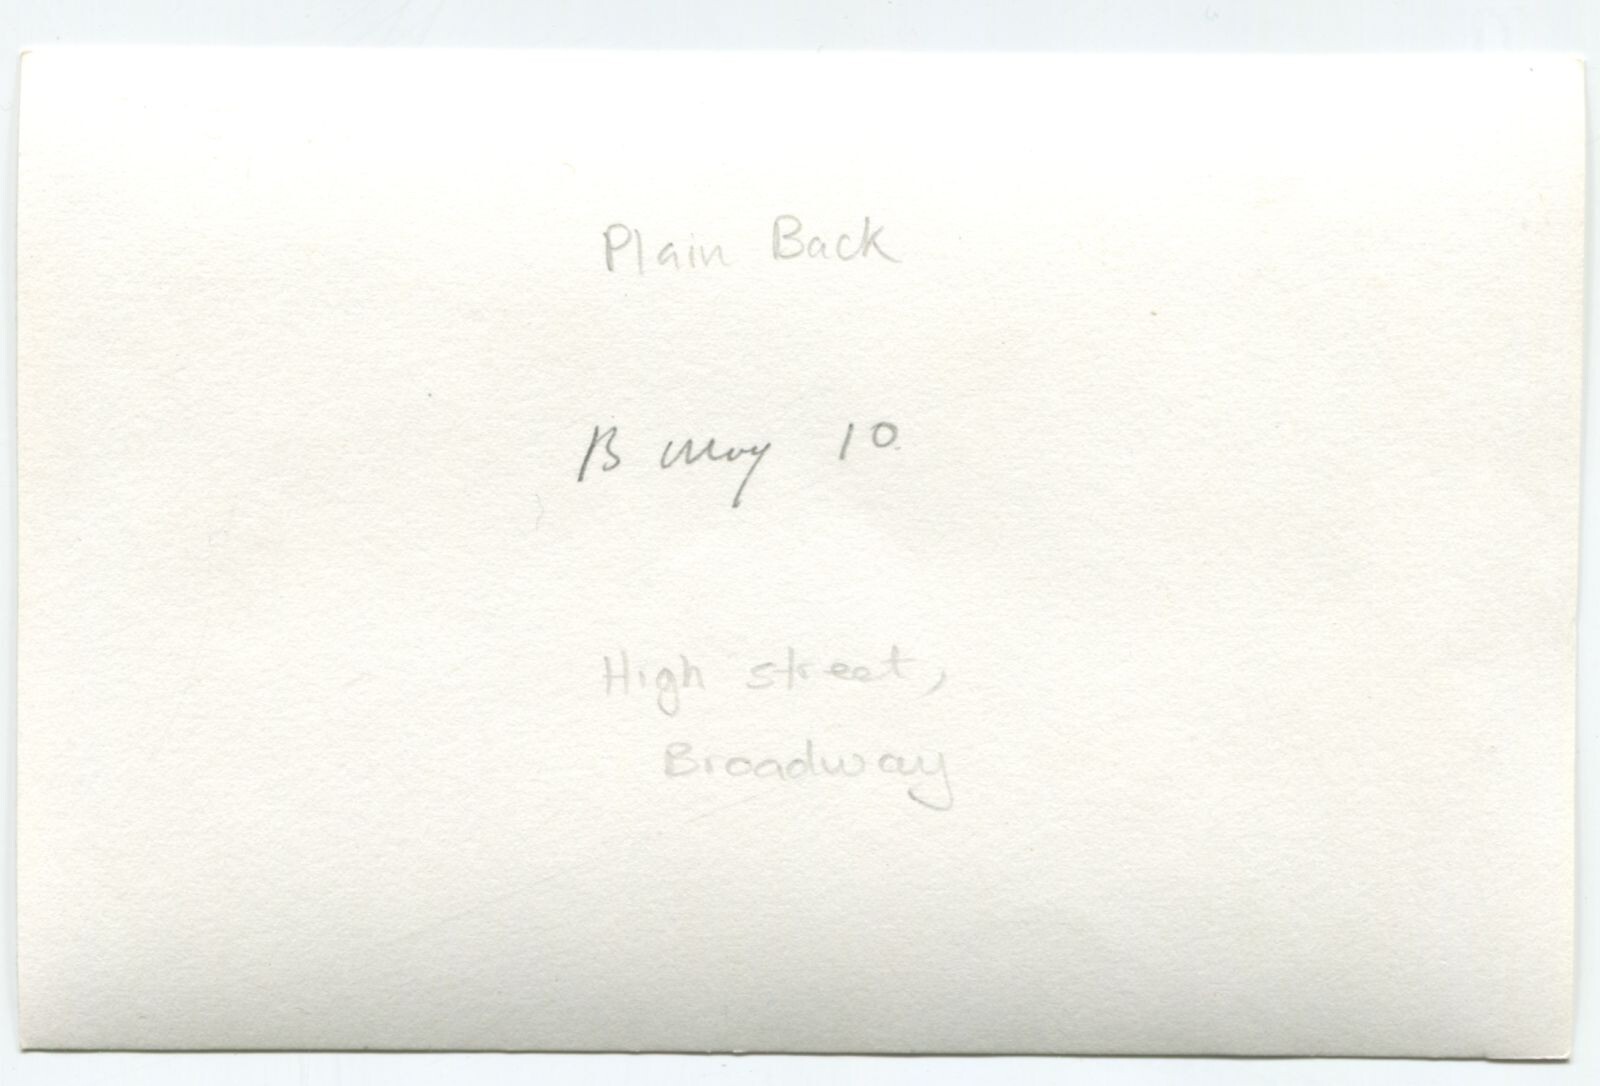 Plain Back
B May 10
High street,
Broadway